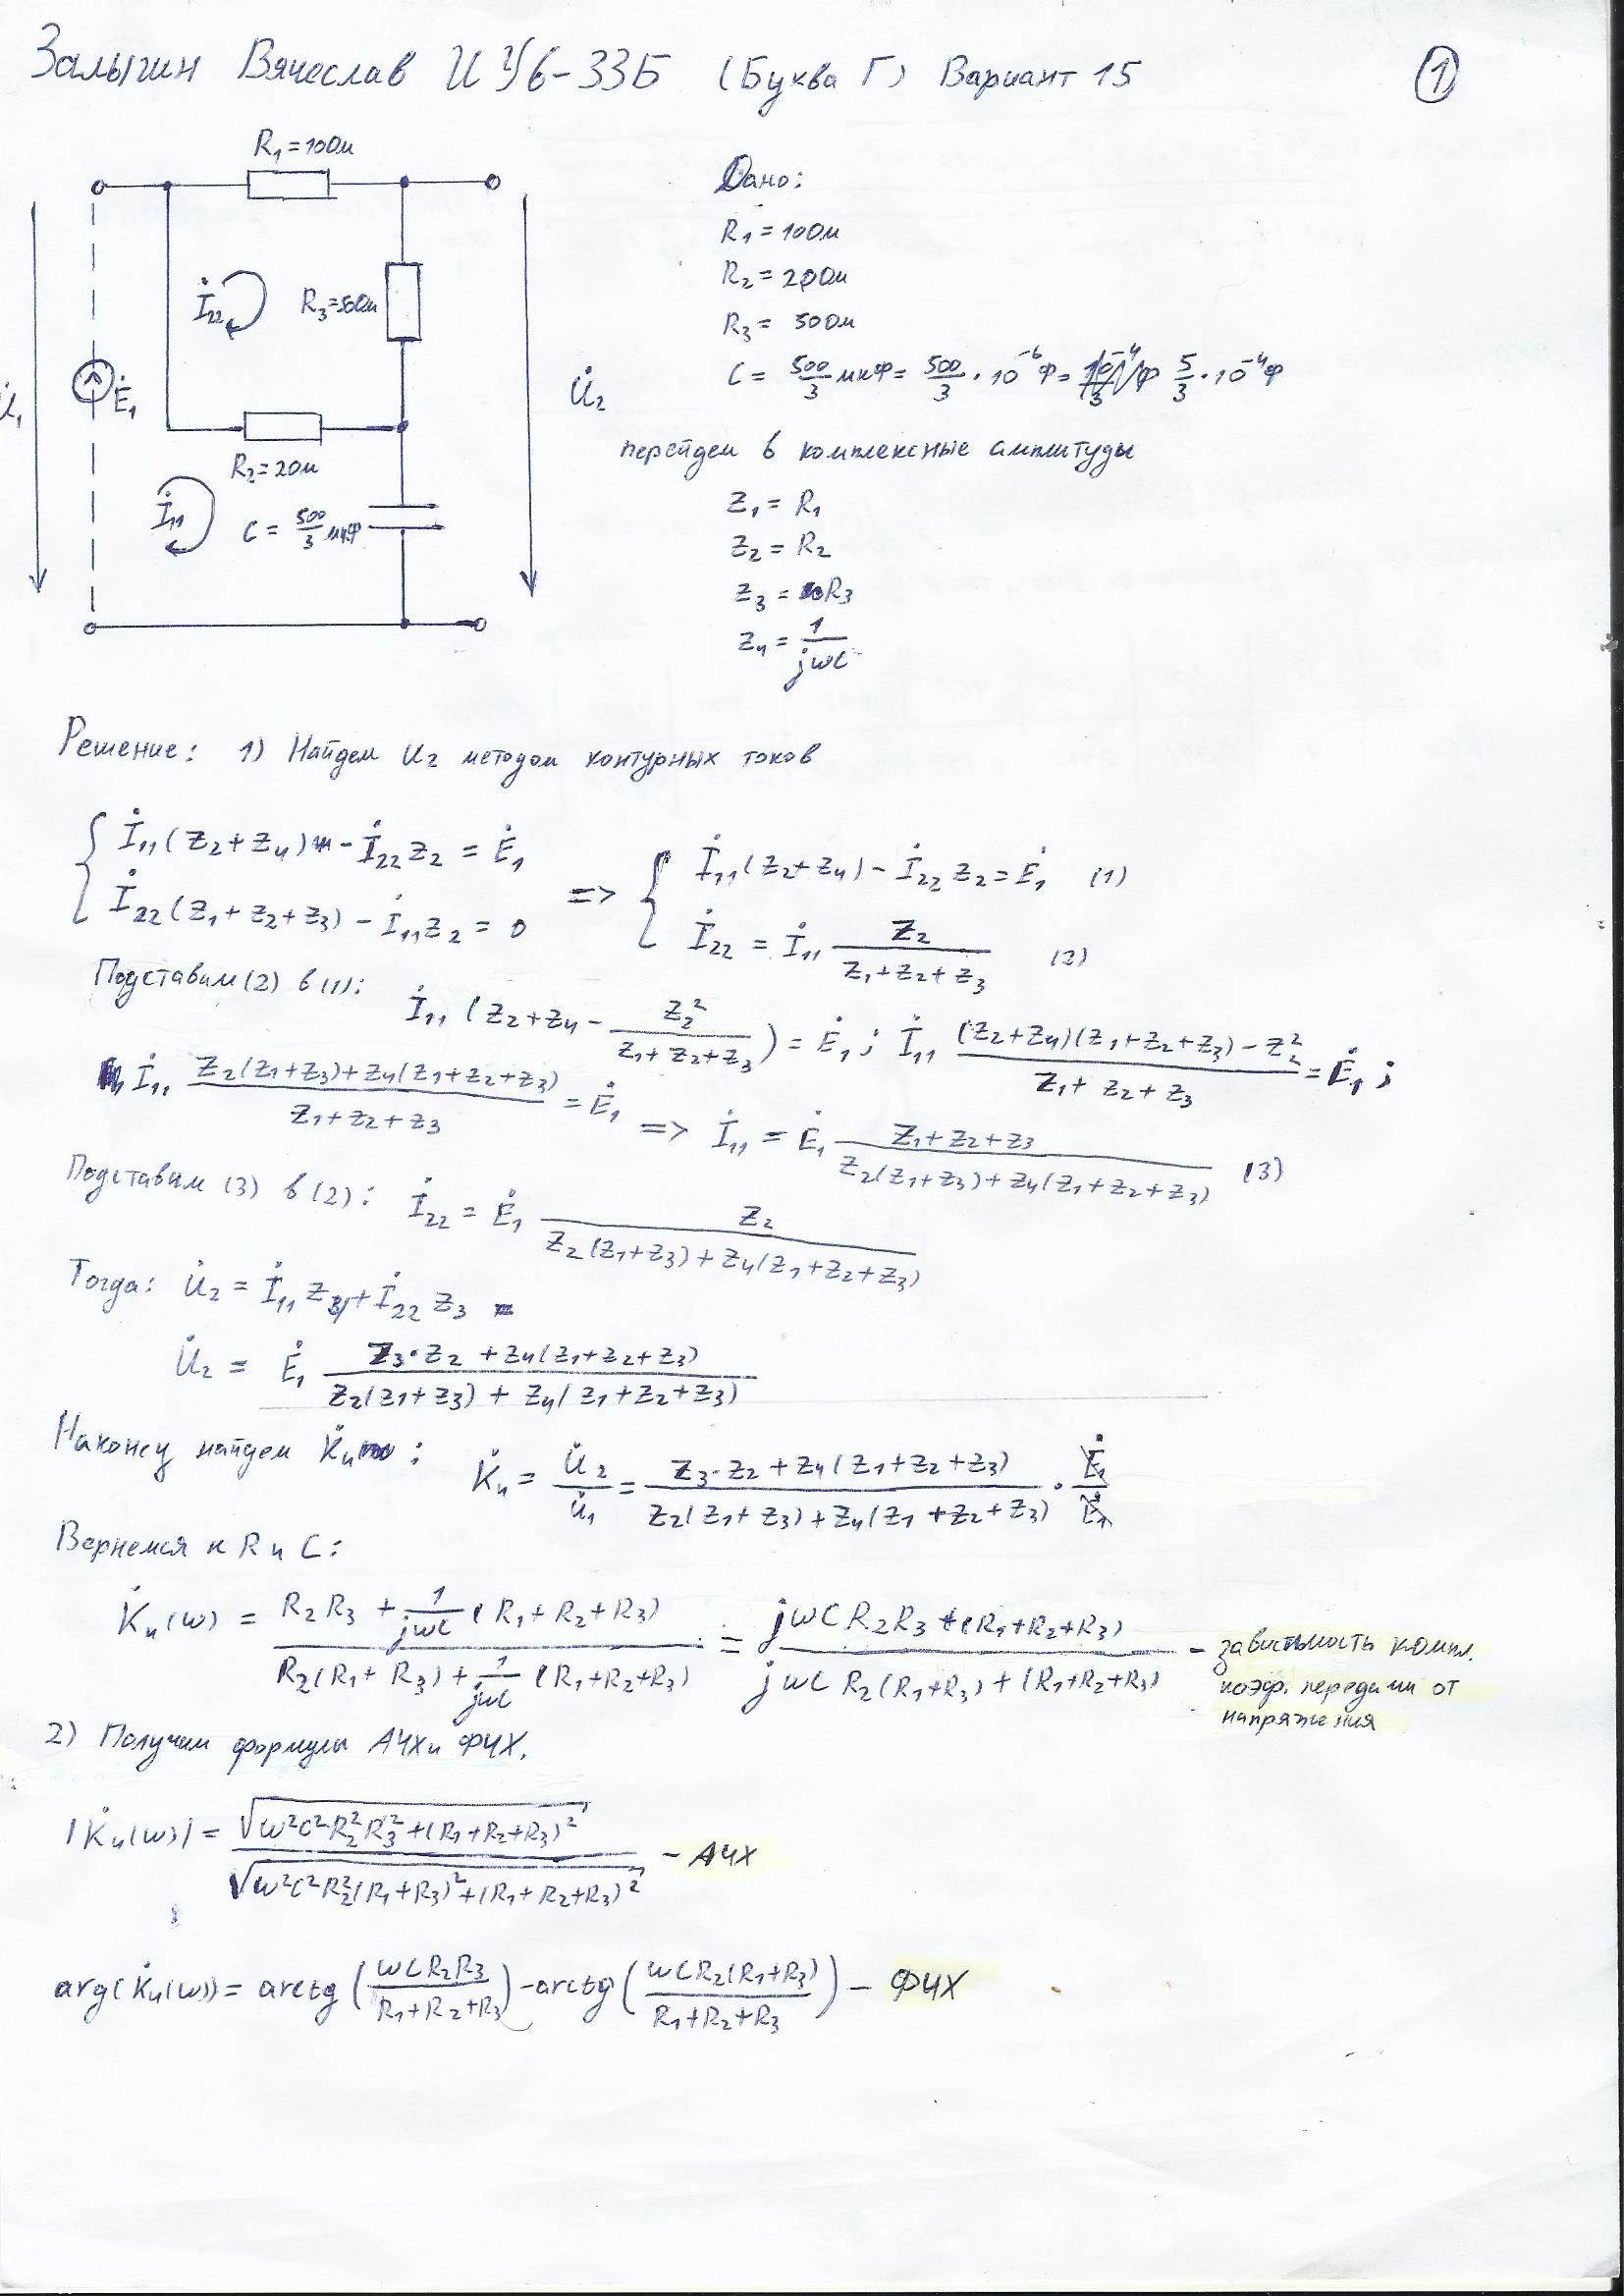 Залыгин Вячеслав ИУ6-33Б (Буква Г) Вариант 15
1
R₁=10Ом
Дано:
R₁ = 10Ом
R₂ = 20Ом
R₃ = 50Ом
C = 500/3 мкФ = 500/3 · 10⁻⁶ Ф = 5/3 · 10⁻⁴ Ф
İ₂₂
R₃=50Ом
Ė₁
U̇₂
R₂=20Ом
İ₁₁
C = 500/3 мкФ
перейдем в комплексные амплитуды
Z₁ = R₁
Z₂ = R₂
Z₃ = R₃
Z₄ = 1/jωC
Решение: 1) Найдем U₂ методом контурных токов
{ İ₁₁(Z₂+Z₄) - İ₂₂Z₂ = Ė₁
İ₂₂(Z₁+Z₂+Z₃) - İ₁₁Z₂ = 0
=> { İ₁₁(Z₂+Z₄) - İ₂₂Z₂ = Ė₁ (1)
İ₂₂ = İ₁₁ Z₂/(Z₁+Z₂+Z₃) (2)
Подставим (2) в (1): İ₁₁(Z₂+Z₄ - Z₂²/(Z₁+Z₂+Z₃)) = Ė₁; İ₁₁ ((Z₂+Z₄)(Z₁+Z₂+Z₃) - Z₂²)/(Z₁+Z₂+Z₃) = Ė₁;
İ₁₁ (Z₂(Z₁+Z₃)+Z₄(Z₁+Z₂+Z₃))/(Z₁+Z₂+Z₃) = Ė₁ => İ₁₁ = Ė₁ (Z₁+Z₂+Z₃)/(Z₂(Z₁+Z₃)+Z₄(Z₁+Z₂+Z₃)) (3)
Подставим (3) в (2): İ₂₂ = Ė₁ Z₂/(Z₂(Z₁+Z₃)+Z₄(Z₁+Z₂+Z₃))
Тогда: U̇₂ = İ₁₁Z₄ + İ₂₂Z₃
U̇₂ = Ė₁ (Z₃·Z₂ + Z₄(Z₁+Z₂+Z₃))/(Z₂(Z₁+Z₃) + Z₄(Z₁+Z₂+Z₃))
Наконец найдем K̇u: K̇u = U̇₂/U̇₁ = (Z₃·Z₂ + Z₄(Z₁+Z₂+Z₃))/(Z₂(Z₁+Z₃)+Z₄(Z₁+Z₂+Z₃)) · Ė₁/Ė₁
Вернемся к R и C:
K̇u(ω) = (R₂R₃ + 1/jωC (R₁+R₂+R₃))/(R₂(R₁+R₃) + 1/jωC (R₁+R₂+R₃)) = (jωCR₂R₃ + (R₁+R₂+R₃))/(jωCR₂(R₁+R₃) + (R₁+R₂+R₃)) - зависимость компл.
коэф. передачи от
напряжения
2) Получим формулы АЧХ и ФЧХ.
|K̇u(ω)| = √(ω²C²R₂²R₃²+(R₁+R₂+R₃)²)/√(ω²C²R₂²(R₁+R₃)²+(R₁+R₂+R₃)²) - АЧХ
arg(K̇u(ω)) = arctg(ωCR₂R₃/(R₁+R₂+R₃)) - arctg(ωCR₂(R₁+R₃)/(R₁+R₂+R₃)) - ФЧХ